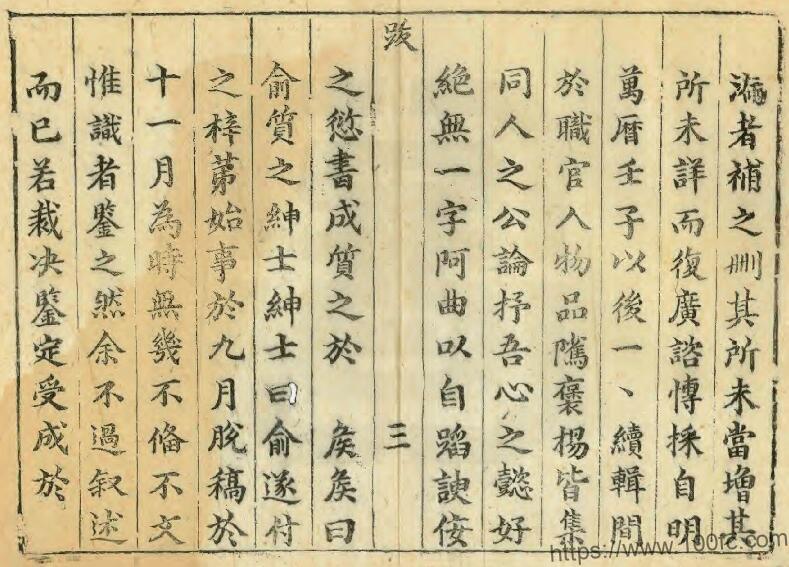 漏者補之刪其所未當增其
所未詳而復廣諮慱採自明
萬曆壬子以後一、續輯間
於職官人物品隲褒楊皆集
同人之公論抒吾心之懿好
絕無一字阿曲以自蹈諛佞
跋
三
之愆書成質之於 矦矦曰
俞質之紳士紳士曰俞遂付
之梓苐始事於九月脫稿於
十一月為時無幾不俻不文
惟識者鑒之然余不過叙述
而已若裁决鑒定受成於
https://www.100fc.com